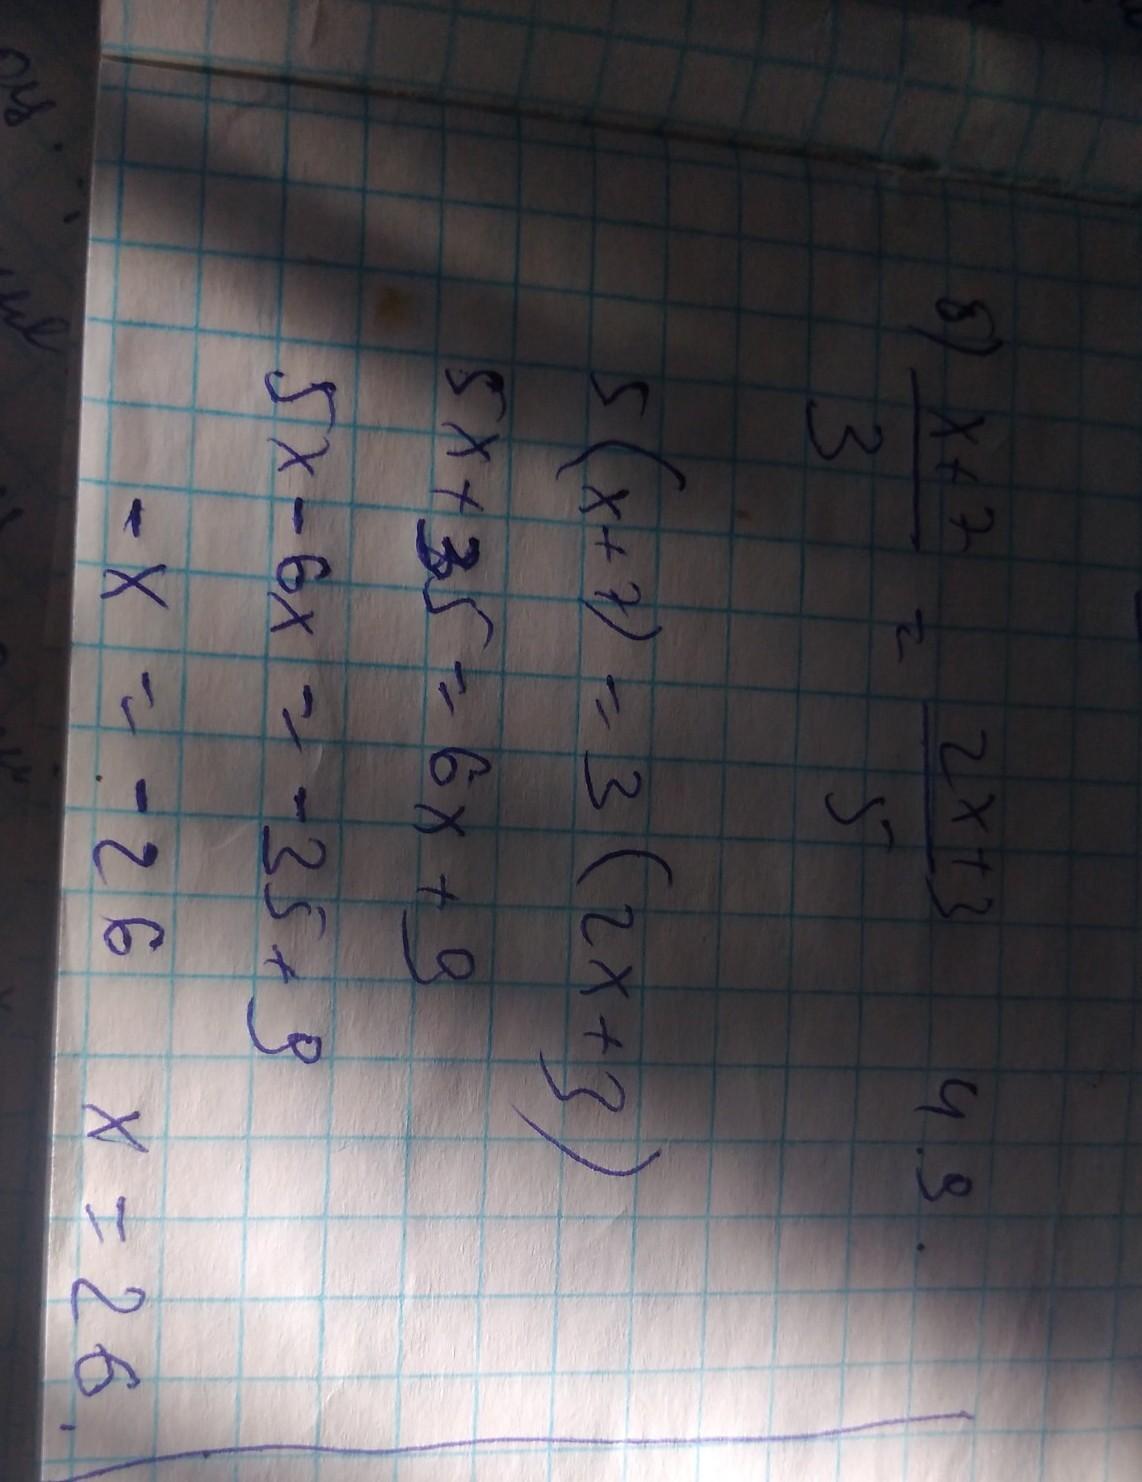 б) x+7/3 = 2x+3/5 4.9.
5(x+7) = 3(2x+3)
5x+35 = 6x+9
5x-6x = -35+9
-x = -26 x = 26.